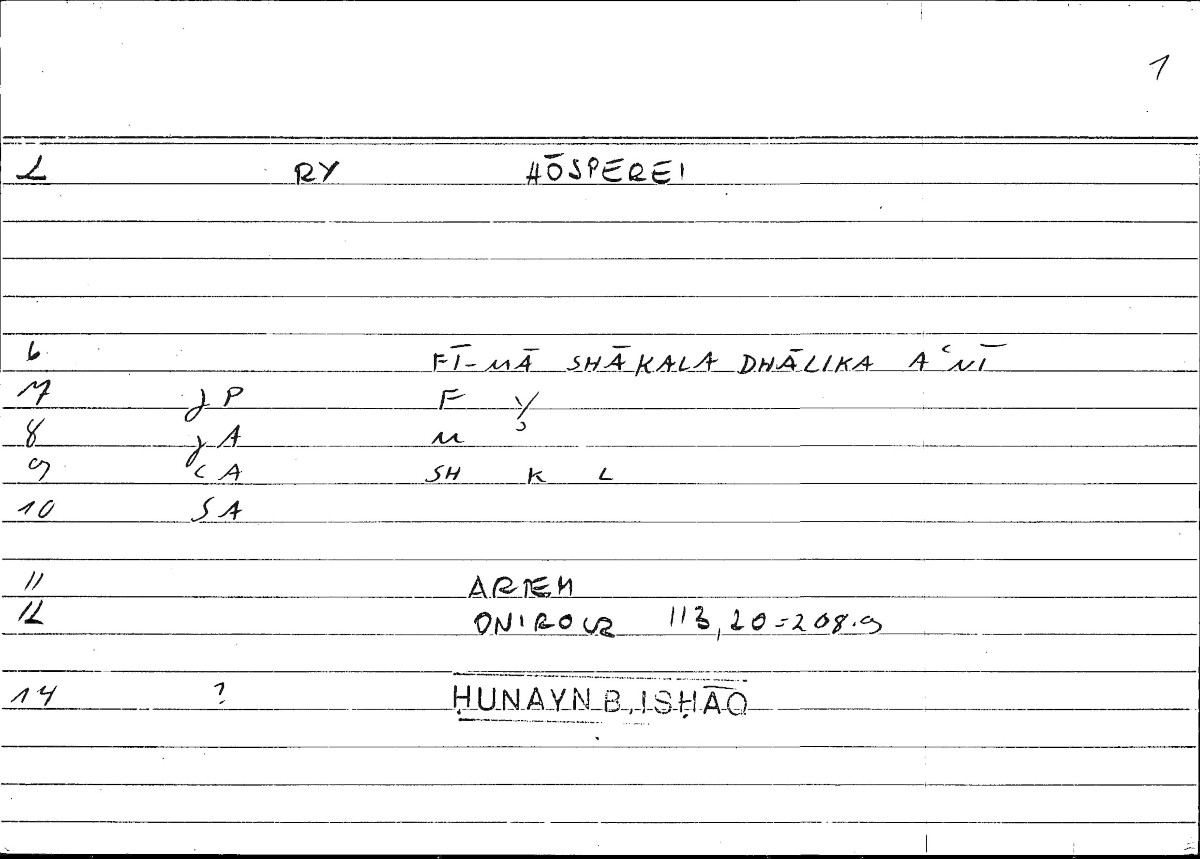 1
2 RY HŌSPEREI
6 FĪ-MĀ SHĀKALA DHĀLIKA AʿNĪ
7 JP F Y
8 JA M
9 CA SH K L
10 SA
11 ARTEM
12 ONIROCR 113,20=208.9
14 ? ḤUNAYN B. ISḤĀQ